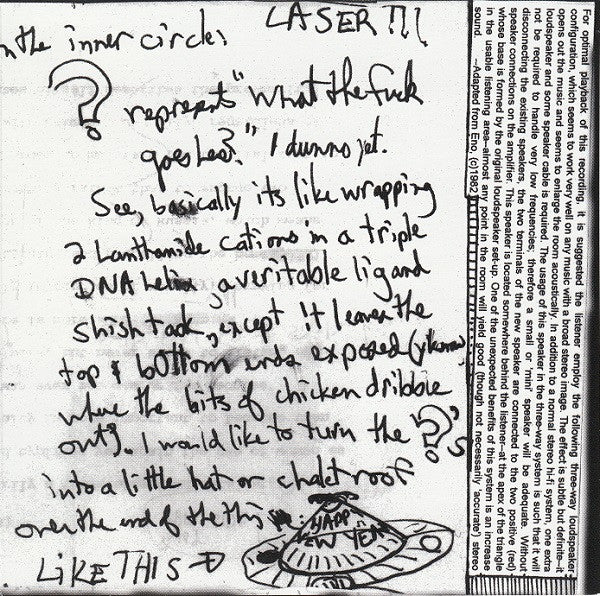 LASER!!!
n the inner circle:
? represent "what the fuck
goes here?" I dunno yet.
See, basically its like wrapping
2 Lanthanide cations in a triple
DNA helix, a veritable ligand
shish tack, except it leaves the
top & bottom ends exposed (y'know,
where the bits of chicken dribble
out). I would like to turn the ?'s
into a little hat or chalet roof
over the end of the thing
LIKE THIS →
HAPPY
NEW YEAR
For optimal playback of this recording, it is suggested the listener employ the following three-way loudspeaker
configuration, which seems to work very well on any music with a broad stereo image. The effect is subtle but definite--it
opens out the music and seems to enlarge the room acoustically. In addition to a normal stereo hi-fi system, one extra
loudspeaker and some speaker cable is required. The usage of this speaker in the three-way system is such that it will
not be required to handle very low frequencies; therefore a small or 'mini' speaker will be adequate. Without
disconnecting the existing speakers, the two terminals of the new speaker are connected to the two positive (red)
speaker connections on the amplifier. This speaker is located somewhere behind the listener--at the apex of the triangle
whose base is formed by the original loudspeaker set-up. One of the unexpected benefits of this system is an increase
in the usable listening area--almost any point in the room will yield good (though not necessarily 'accurate') stereo
sound. --Adapted from Eno, (c)1982